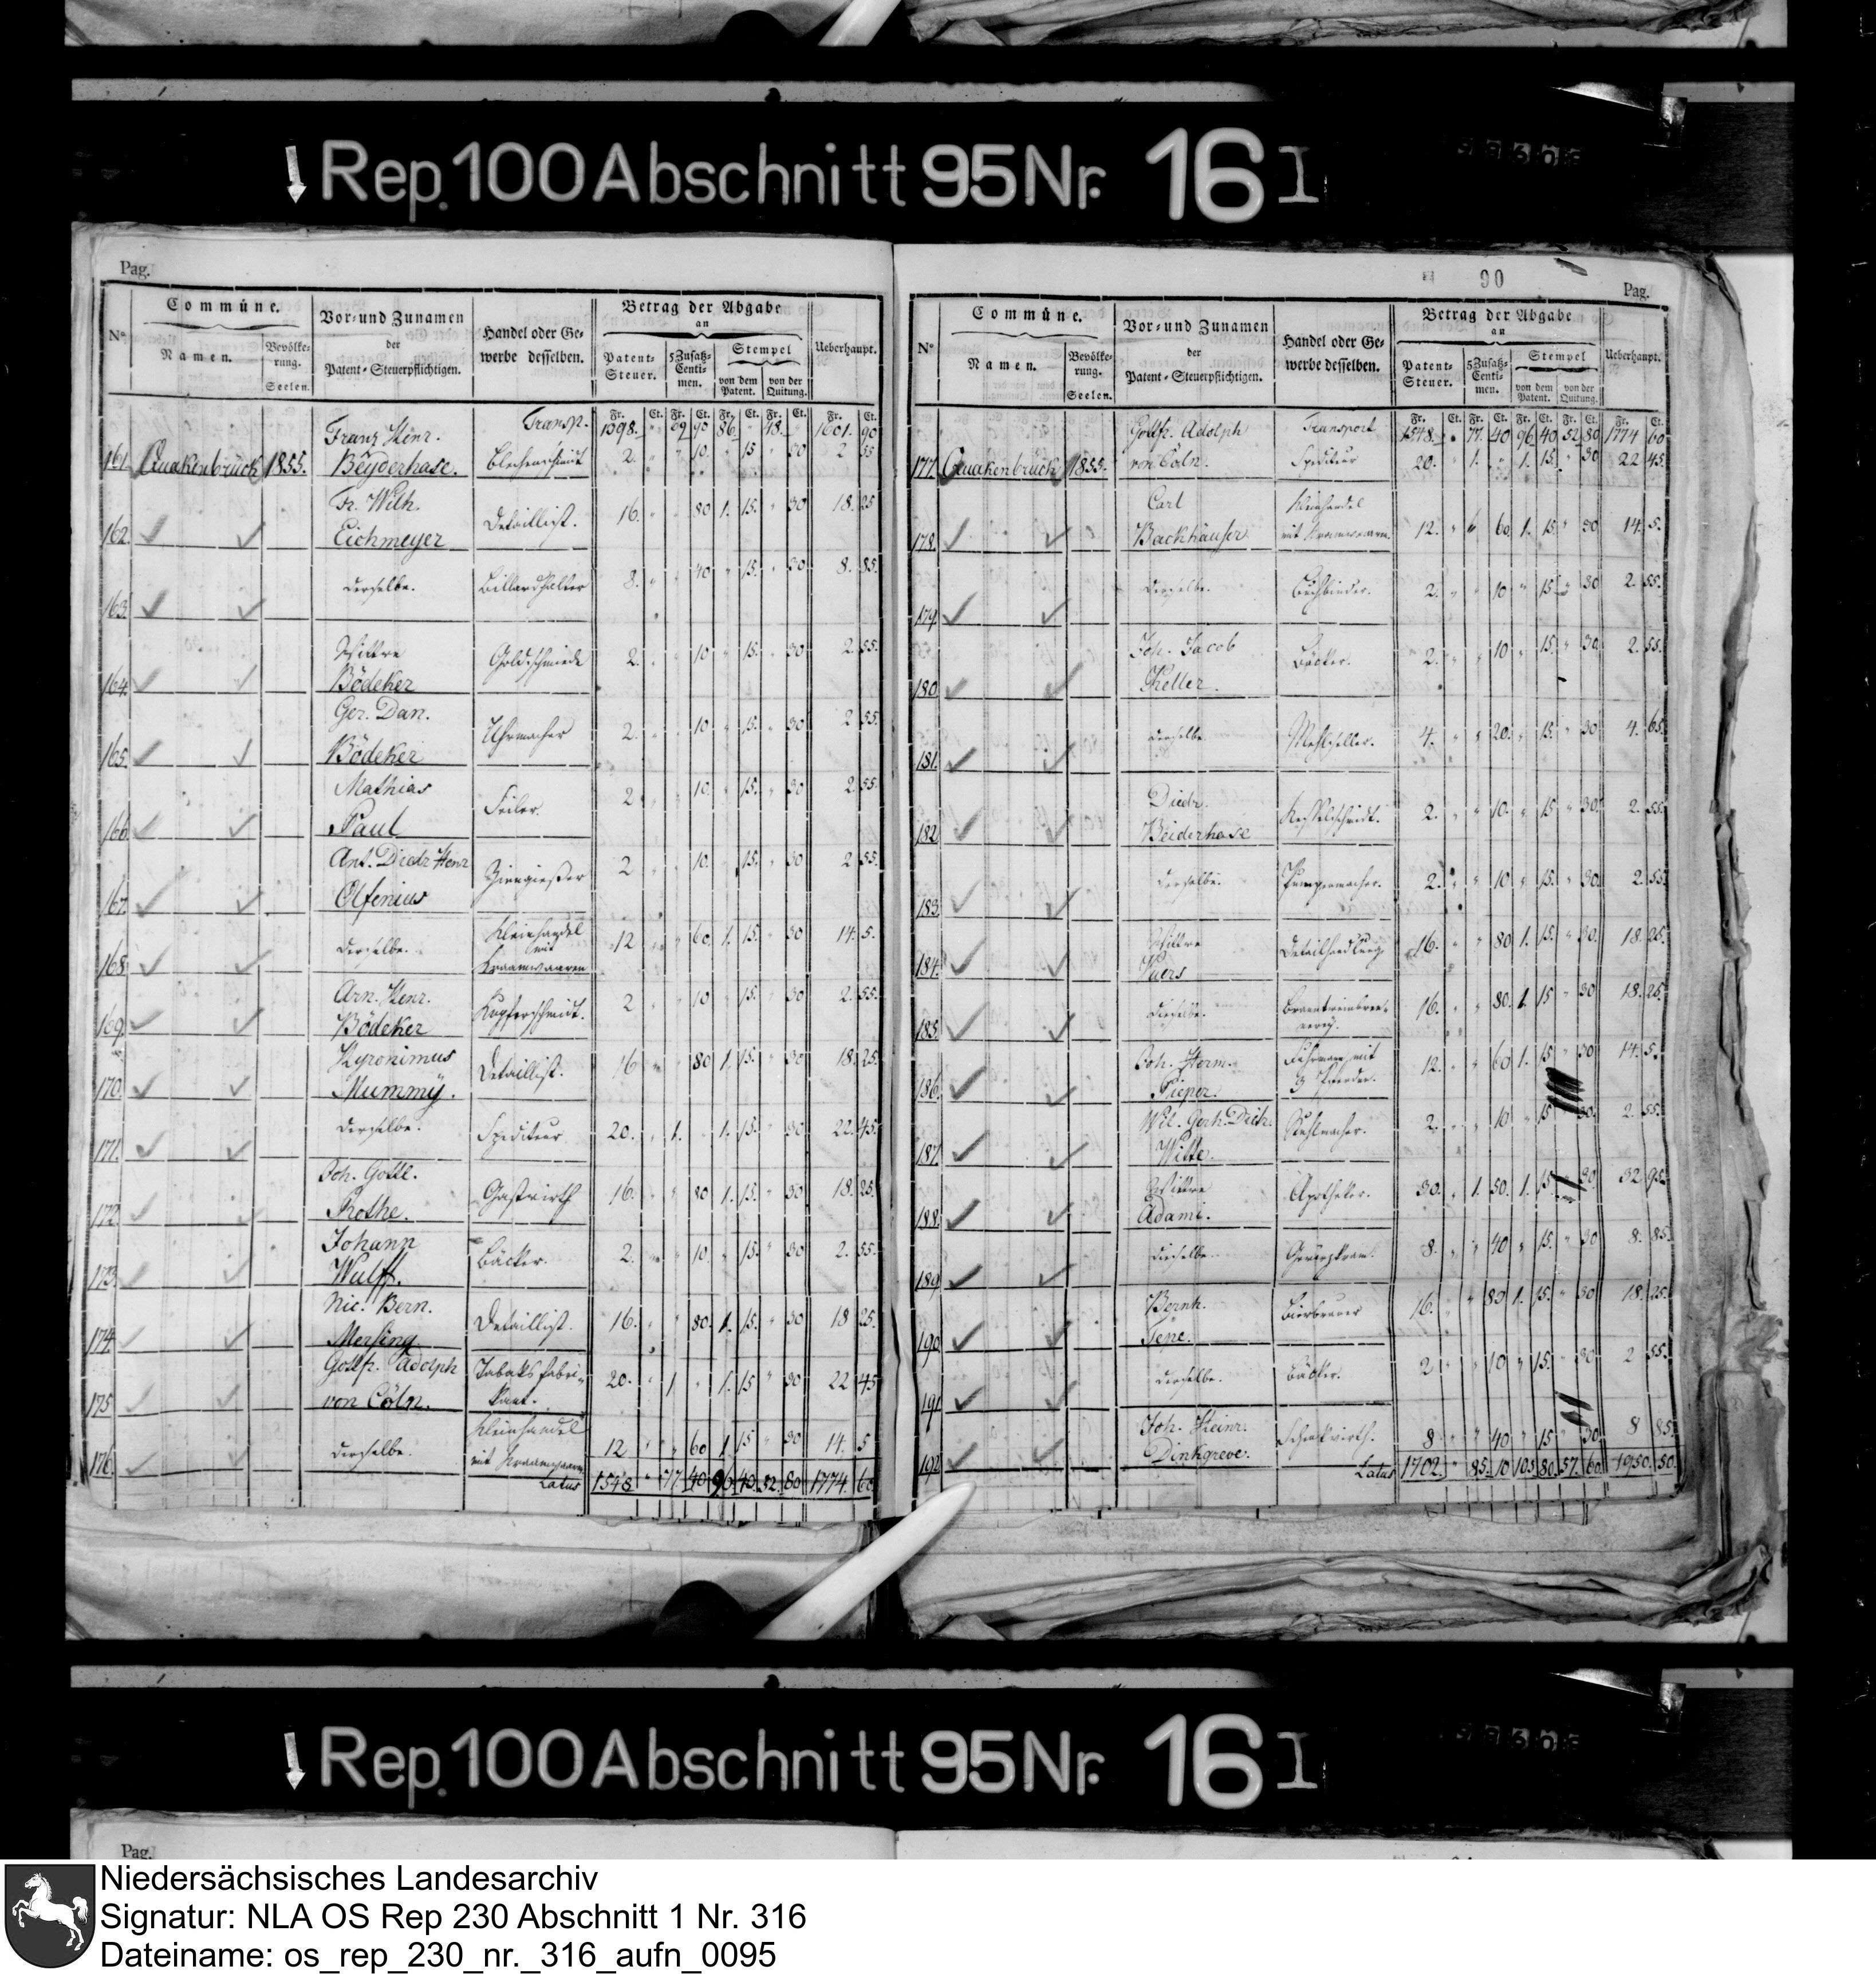 Rep. 100 Abschnitt 95 Nr. 16 I
Pag.
Commúne.
Vor- und Zunamen
der
Patent-Steuerpflichtigen.
Handel oder Ge-
werbe desselben.
Betrag der Abgabe
an
N°
Namen.
Bevölke-
rung.
Seelen.
Patent-
Steuer.
5 Zusatz-
Centi-
men.
Stempel
von dem
Patent.
von der
Quitung.
Ueberhaupt.
Fr. Ct. Fr. Ct. Fr. Ct. Fr. Ct. Fr. Ct.
Transp. 1398. " 69 90 86 " 48. " 1601. 90
161. Quakenbrück 1855. Franz Henr. Beyderhase. Blechenschmidt 2. " " 10. " 15 " 30 2 55
162. Fr. Wilh. Eichmeyer Detaillist. 16. " " 80 1. 15. " 30 18. 25
163. derselbe. Billardhalter 8. " " 40 " 15. " 30 8. 85.
164. Wittwe Bödeker Goldschmiede 2. " " 10 " 15. " 30 2. 55.
165. Ger. Dan. Bödeker Uhrmacher 2. " " 10 " 15. " 30 2 55.
166. Mathias Paul Seiler. 2 " " 10. " 15. " 30 2 55.
167. Ant. Diedr Henr Olfenius Zinngießer 2 " " 10. 15. " 30 2 55.
168. derselbe. Kleinhandel mit Kraamwaaren 12 " " 60. 1. 15. " 30 14. 5.
169. Arn. Henr. Bödeker Kupferschmidt. 2 " " 10 " 15. " 30 2. 55.
170. Hyronimus Mummÿ. Detaillist. 16 " " 80 1. 15. " 30 18. 25.
171. derselbe. Spediteur 20. " 1. " 1. 15. " 30 22. 45.
172. Joh. Gottl. Rothe. Gastwirth 16. " " 80 1. 15. " 30 18. 25.
173. Johann Wulff. Bäcker. 2. " " 10. " 15. " 30 2. 55.
174. Nic. Bern. Mersing Detaillist. 16. " " 80. 1. 15. " 30 18 25.
175. Gottfr. Adolph von Cöln. Tabaksfabri- kant. 20. " 1 " 1. 15 " 30 22 45
176. derselbe. Kleinhandel mit Kraamwaaren 12 " " 60 1 15 " 30 14. 5
Latus 1548 " 77. 40 96. 40. 52. 80 1774. 60
90
Pag.
Commúne.
Vor- und Zunamen
der
Patent-Steuerpflichtigen.
Handel oder Ge-
werbe desselben.
Betrag der Abgabe
an
N°
Namen.
Bevölke-
rung.
Seelen.
Patent-
Steuer.
5 Zusatz-
Centi-
men.
Stempel
von dem
Patent.
von der
Quitung.
Ueberhaupt.
Fr. Ct. Fr. Ct. Fr. Ct. Fr. Ct. Fr. Ct.
Transport 1548. " 77. 40 96 40 52 80 1774 60
177. Quakenbrück 1855. Gottfr. Adolph von Cöln. Spediteur 20. " 1. " 1. 15. " 30 22 45.
178. Carl Backhäuser Kleinhandel mit Kraamwaaren. 12. " 60 1. 15 " 30 14. 5.
179. derselbe. Buchbinder. 2. " " 10 " 15 " 30 2. 55.
180 Joh. Jacob Keller. Bäcker. 2. " " 10 " 15. " 30 2. 55.
181. derselbe Mehlseller. 4. " " 20. " 15. " 30 4. 65.
182 Diedr. Beiderhase Kesselschmidt. 2. " " 10. " 15 " 30. 2. 55.
183. derselbe. Pumpenmacher. 2. " " 10 " 15. " 30. 2. 55.
184. Wittwe Detailhandlung 16. " " 80 1. 15. " 30. 18. 25.
185. dieselbe. 16. " " 80. 1. 15 " 30 18. 25.
186. Joh. Herm. Pieper. Fuhrmann mit 3 Pferden. 12. " " 60 1. 15 " 30 14. 5.
187. Wil. Gerh. Died. Witte. Stuhlmacher. 2. " " 10 " 15 30. 2. 55.
188. Wittwe Adami. Apotheker. 30. " 1. 50. 1. 15. 30. 32. 95.
189. dieselbe Gewürzkram. 8. " " 40 " 15. " 30 8. 85.
190. Bernh. Tepe. Bierbrauer 16. " " 80 1. 15. " 30 18. 25.
191. derselbe. Bäcker. 2 " " 10 " 15. " 30 2 55.
192. Joh. Heinr. Dinkgreve. Schenkwirth. 8. " " 40 " 15 " 30. 8 85.
Latus 1702. " 85. 10 105. 80. 57. 60 1950. 50.
Rep. 100 Abschnitt 95 Nr. 16 I
Pag.
Niedersächsisches Landesarchiv
Signatur: NLA OS Rep 230 Abschnitt 1 Nr. 316
Dateiname: os_rep_230_nr._316_aufn_0095